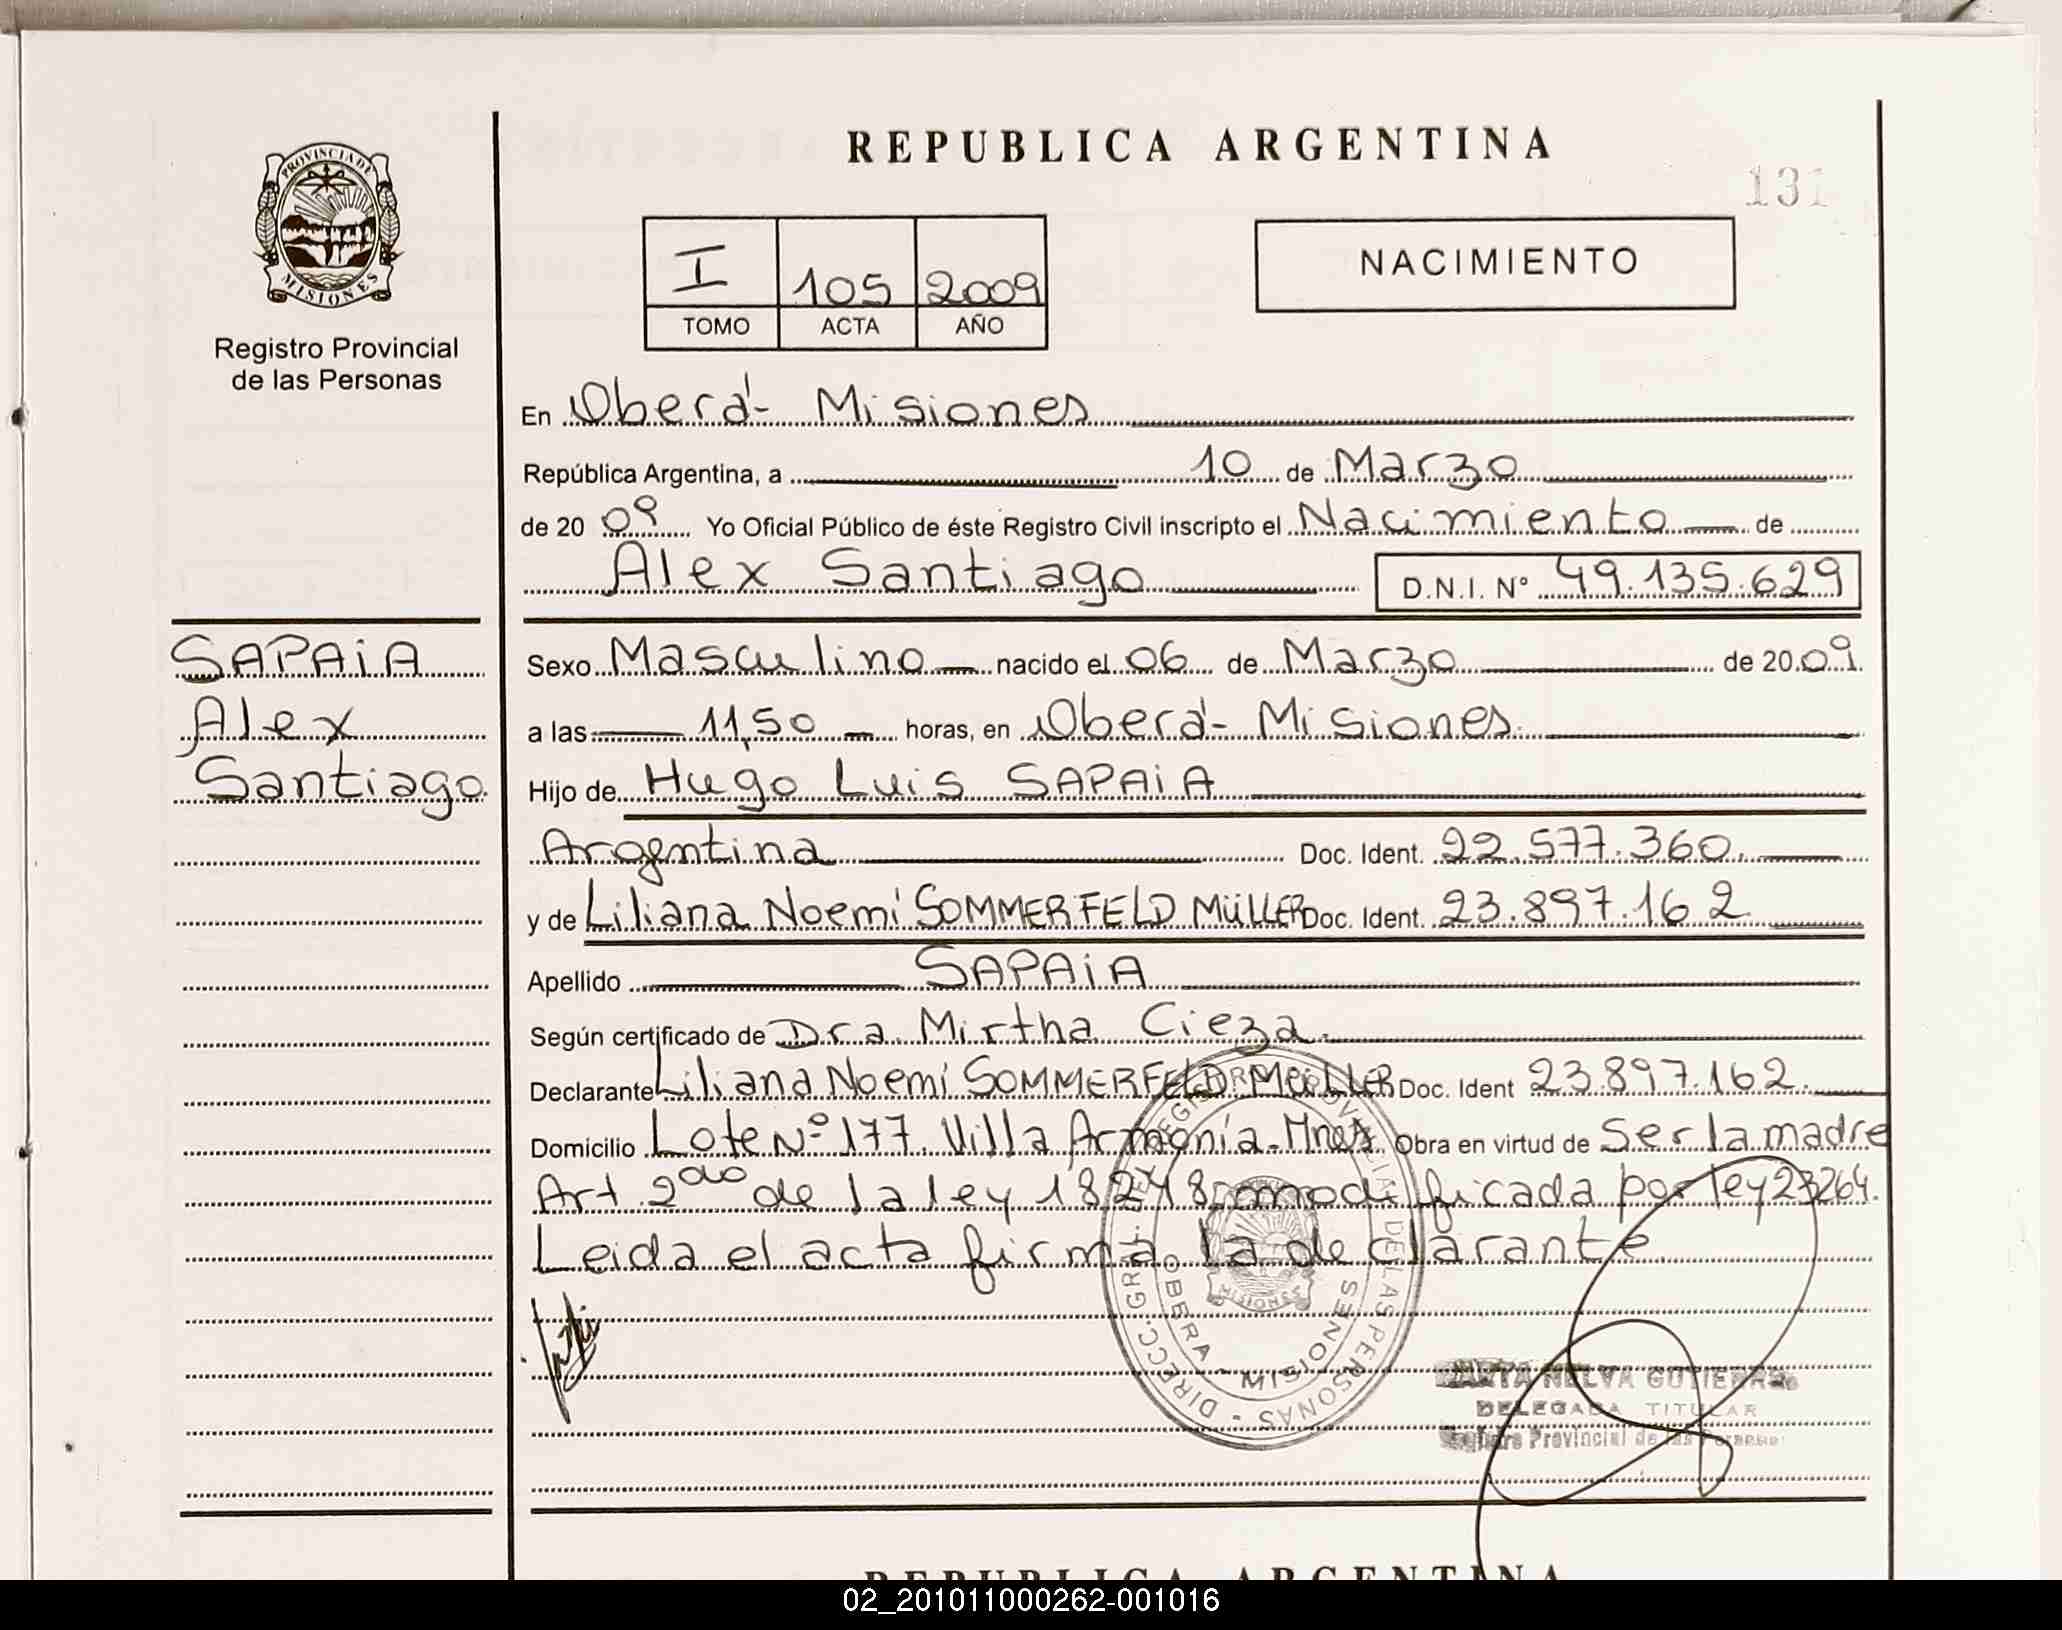 REPUBLICA ARGENTINA
131
PROVINCIA DE
MISIONES
Registro Provincial
de las Personas
I 105 2009
TOMO ACTA AÑO
NACIMIENTO
En Oberá - Misiones
República Argentina, a 10 de Marzo
de 20 09 Yo Oficial Público de éste Registro Civil inscripto el Nacimiento de
Alex Santiago D.N.I. Nº 49.135.629
SAPAiA
Alex
Santiago
Sexo Masculino nacido el 06 de Marzo de 20 09
a las 11,50 horas, en Oberá - Misiones
Hijo de Hugo Luis SAPAiA
Argentina Doc. Ident. 22.577.360.
y de Liliana Noemí SOMMERFELD MüLLER Doc. Ident. 23.897.162
Apellido SAPAiA
Según certificado de Dra. Mirtha Cieza.
Declarante Liliana Noemí SOMMERFELD MüLLER Doc. Ident 23.897.162.
Domicilio Lote Nº 177. Villa Armonía - Mnes. Obra en virtud de Ser la madre
Art. 2do de la ley 18248 modificada por ley 23264.
Leida el acta firma la declarante
DIRECC. GRAL. DEL REGISTRO PROVINCIAL DE LAS PERSONAS -
OBERA - MISIONES
MISIONES
MARTA NELVA GUTIERREZ
DELEGADA TITULAR
Registro Provincial de las Personas
REPUBLICA ARGENTINA
02_201011000262-001016